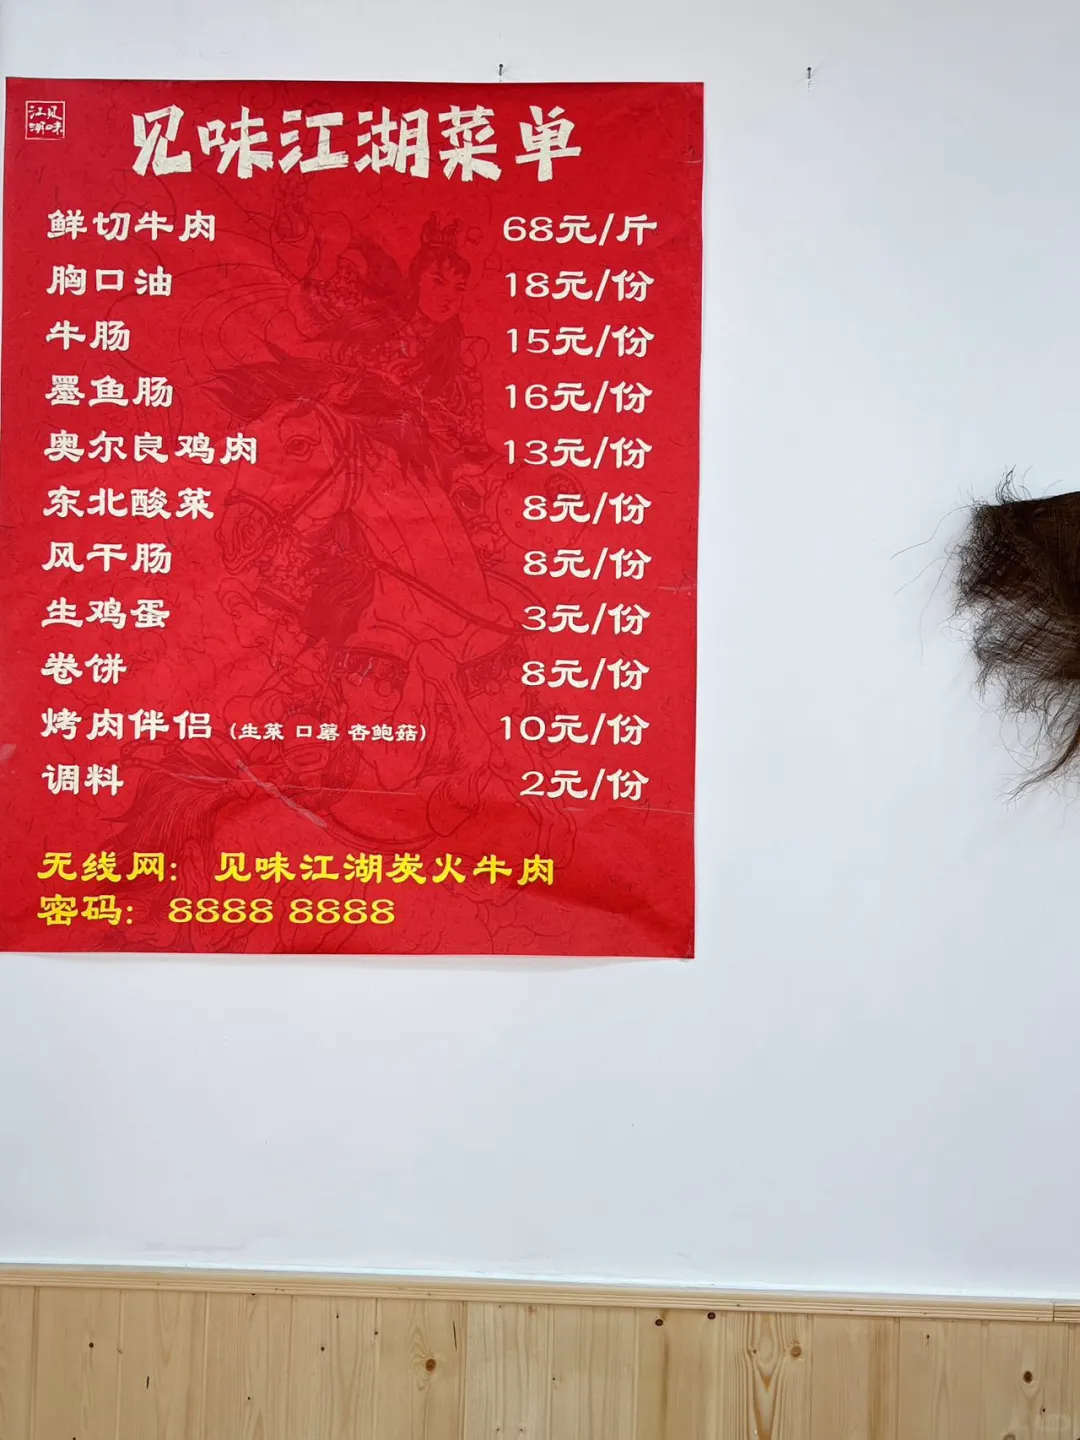 江见
湖味
见味江湖菜单
鲜切牛肉 68元/斤
胸口油 18元/份
牛肠 15元/份
墨鱼肠 16元/份
奥尔良鸡肉 13元/份
东北酸菜 8元/份
风干肠 8元/份
生鸡蛋 3元/份
卷饼 8元/份
烤肉伴侣(生菜 口蘑 杏鲍菇) 10元/份
调料 2元/份
无线网: 见味江湖炭火牛肉
密码: 8888 8888